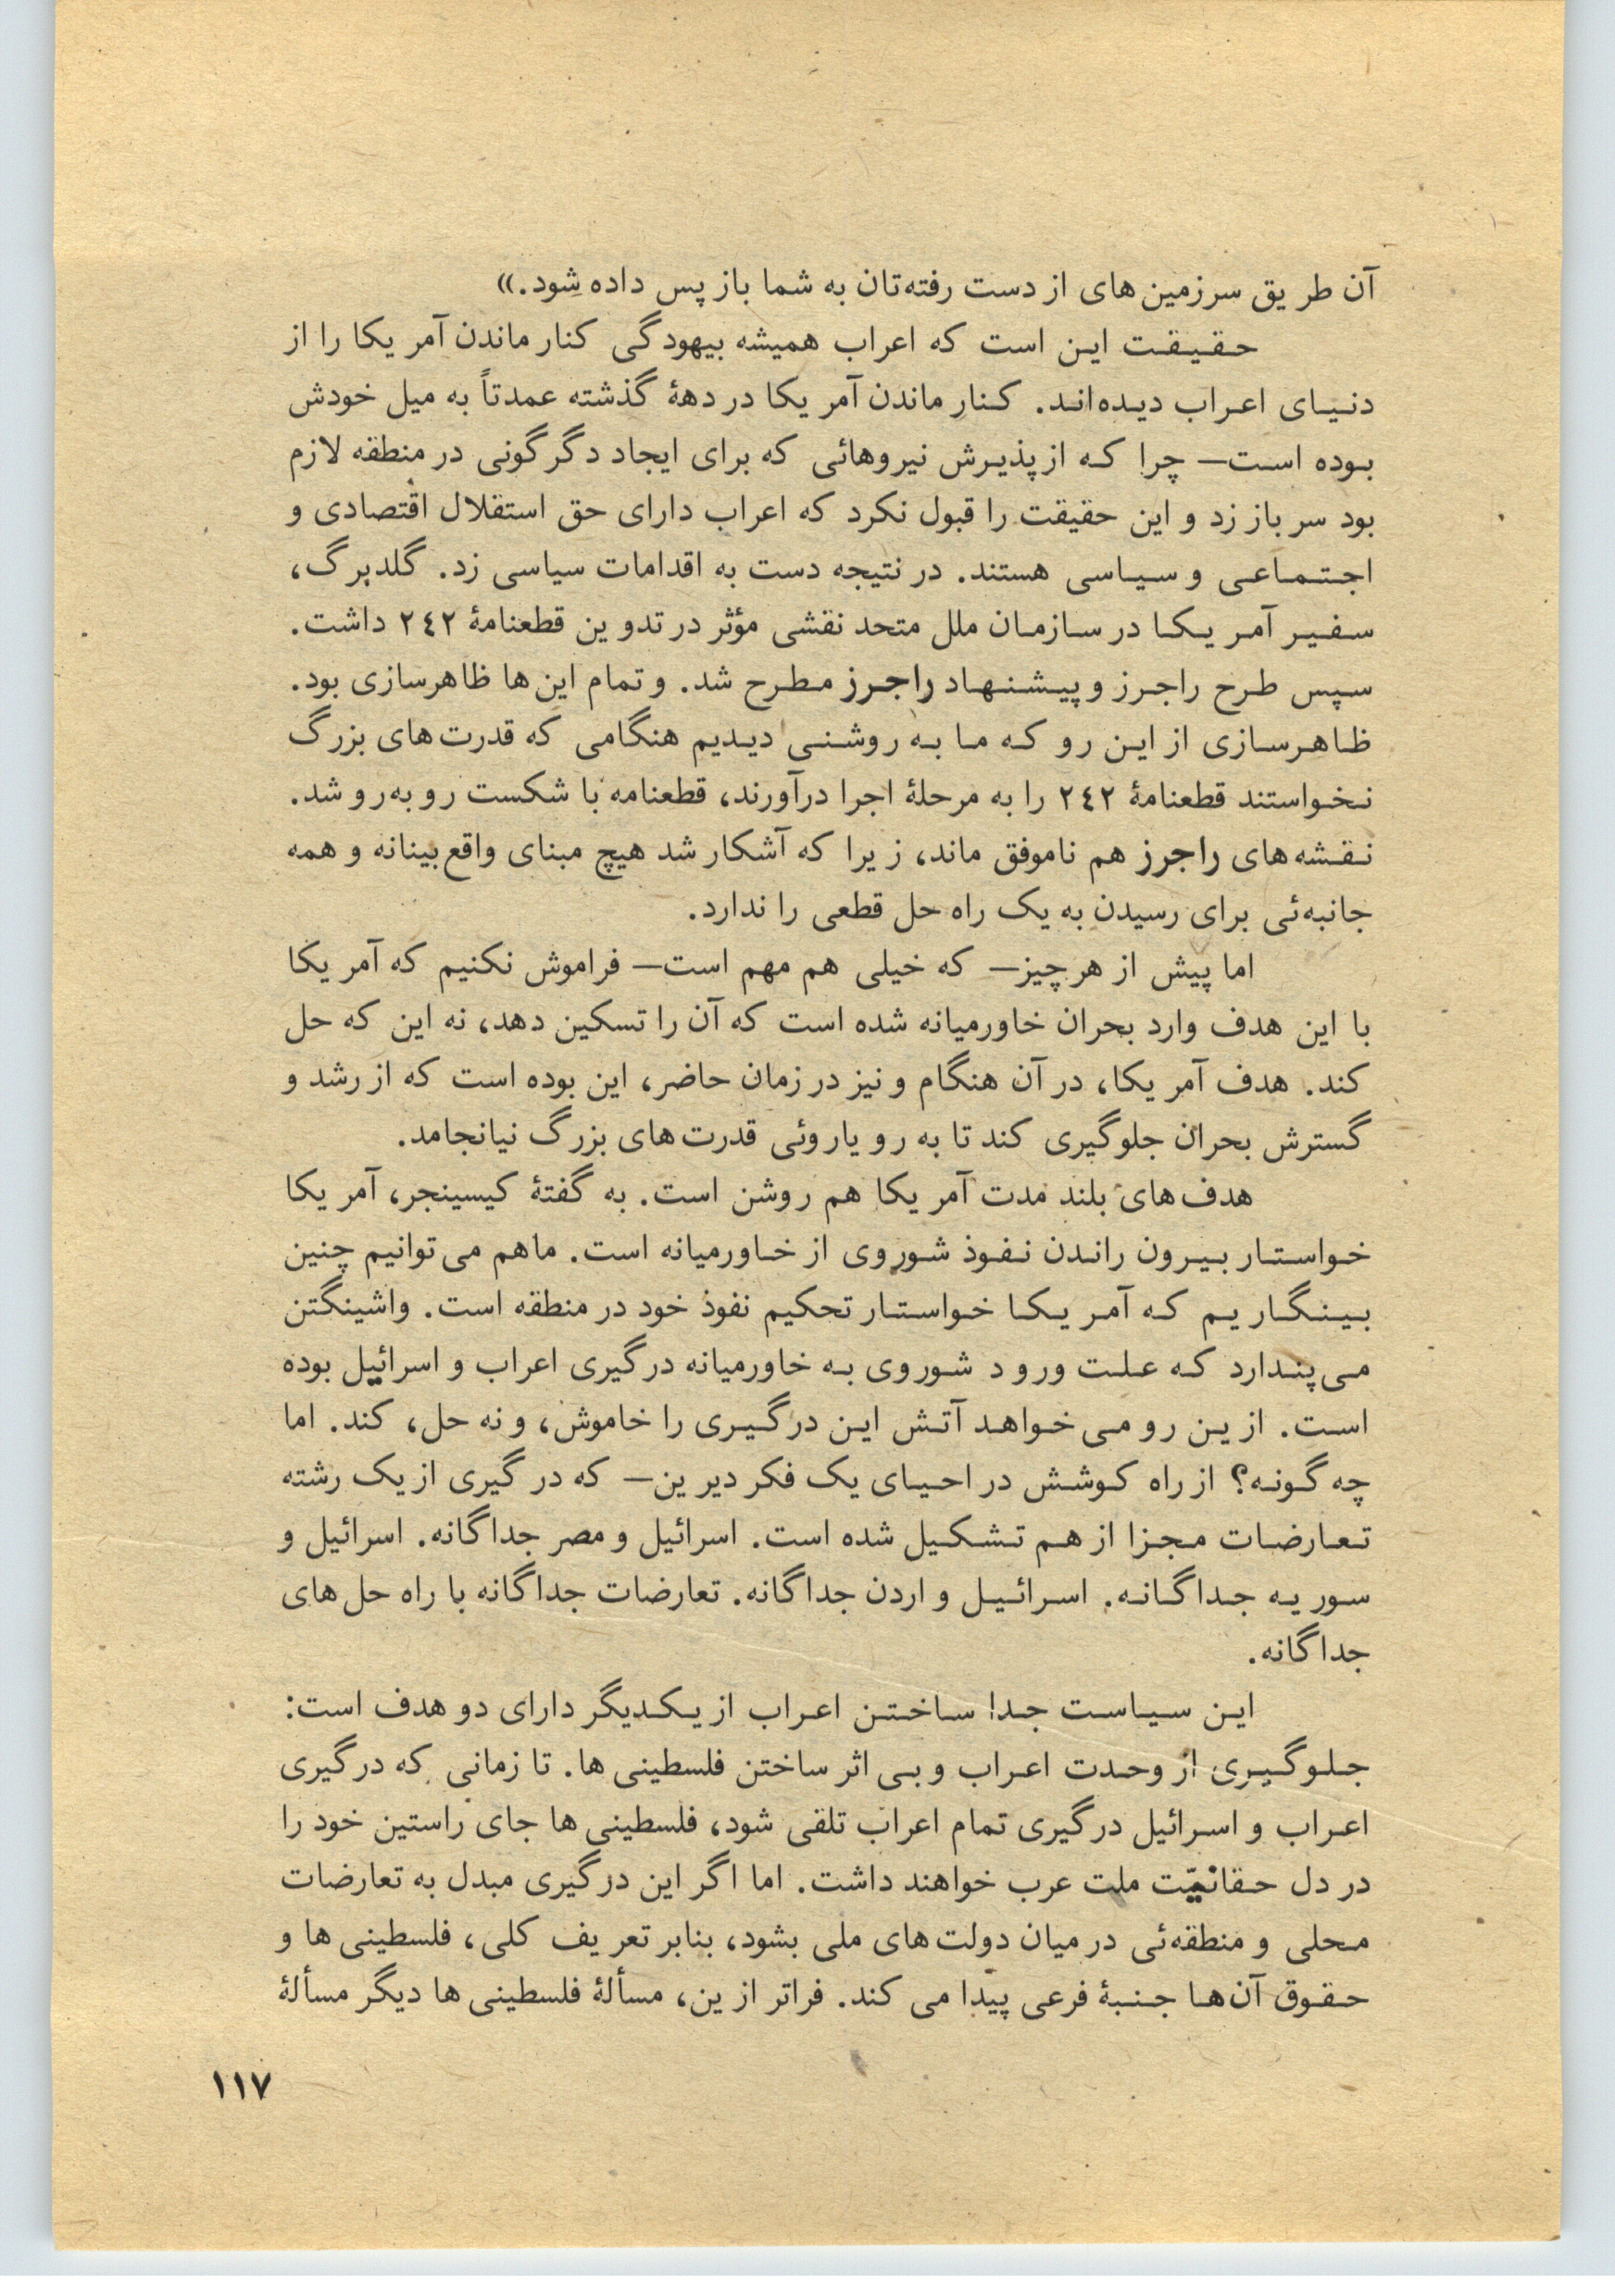 آن طریق سرزمین‌های از دست رفته‌تان به شما باز پس داده شود.»
حقیقت این است که اعراب همیشه بیهودگی کنار ماندن آمریکا را از
دنیای اعراب دیده‌اند. کنار ماندن آمریکا در دههٔ گذشته عمدتاً به میل خودش
بوده است— چرا که از پذیرش نیروهائی که برای ایجاد دگرگونی در منطقه لازم
بود سر باز زد و این حقیقت را قبول نکرد که اعراب دارای حق استقلال اقتصادی و
اجتماعی و سیاسی هستند. در نتیجه دست به اقدامات سیاسی زد. گلدبرگ،
سفیر آمریکا در سازمان ملل متحد نقشی مؤثر در تدوین قطعنامهٔ ۲٤۲ داشت.
سپس طرح راجرز و پیشنهاد راجرز مطرح شد. و تمام این‌ها ظاهرسازی بود.
ظاهرسازی از این رو که ما به روشنی دیدیم هنگامی که قدرت‌های بزرگ
نخواستند قطعنامهٔ ۲٤۲ را به مرحلهٔ اجرا درآورند، قطعنامه با شکست روبه‌رو شد.
نقشه‌های راجرز هم ناموفق ماند، زیرا که آشکار شد هیچ مبنای واقع‌بینانه و همه
جانبه‌ئی برای رسیدن به یک راه حل قطعی را ندارد.
اما پیش از هر چیز— که خیلی هم مهم است— فراموش نکنیم که آمریکا
با این هدف وارد بحران خاورمیانه شده است که آن را تسکین دهد، نه این که حل
کند. هدف آمریکا، در آن هنگام و نیز در زمان حاضر، این بوده است که از رشد و
گسترش بحران جلوگیری کند تا به رویاروئی قدرت‌های بزرگ نیانجامد.
هدف‌های بلند مدت آمریکا هم روشن است. به گفتهٔ کیسینجر، آمریکا
خواستار بیرون راندن نفوذ شوروی از خاورمیانه است. ماهم می‌توانیم چنین
بینگاریم که آمریکا خواستار تحکیم نفوذ خود در منطقه است. واشینگتن
می‌پندارد که علت ورود شوروی به خاورمیانه درگیری اعراب و اسرائیل بوده
است. ازین رو می‌خواهد آتش این درگیری را خاموش، و نه حل، کند. اما
چه گونه؟ از راه کوشش در احیای یک فکر دیرین— که درگیری از یک رشته
تعارضات مجزا از هم تشکیل شده است. اسرائیل و مصر جداگانه. اسرائیل و
سوریه جداگانه. اسرائیل و اردن جداگانه. تعارضات جداگانه با راه حل‌های
جداگانه.
این سیاست جدا ساختن اعراب از یکدیگر دارای دو هدف است:
جلوگیری از وحدت اعراب و بی‌اثر ساختن فلسطینی‌ها. تا زمانی که درگیری
اعراب و اسرائیل درگیری تمام اعراب تلقی شود، فلسطینی‌ها جای راستین خود را
در دل حقانیّت ملت عرب خواهند داشت. اما اگر این درگیری مبدل به تعارضات
محلی و منطقه‌ئی در میان دولت‌های ملی بشود، بنابر تعریف کلی، فلسطینی‌ها و
حقوق آن‌ها جنبهٔ فرعی پیدا می‌کند. فراتر ازین، مسألهٔ فلسطینی‌ها دیگر مسألهٔ
۱۱۷